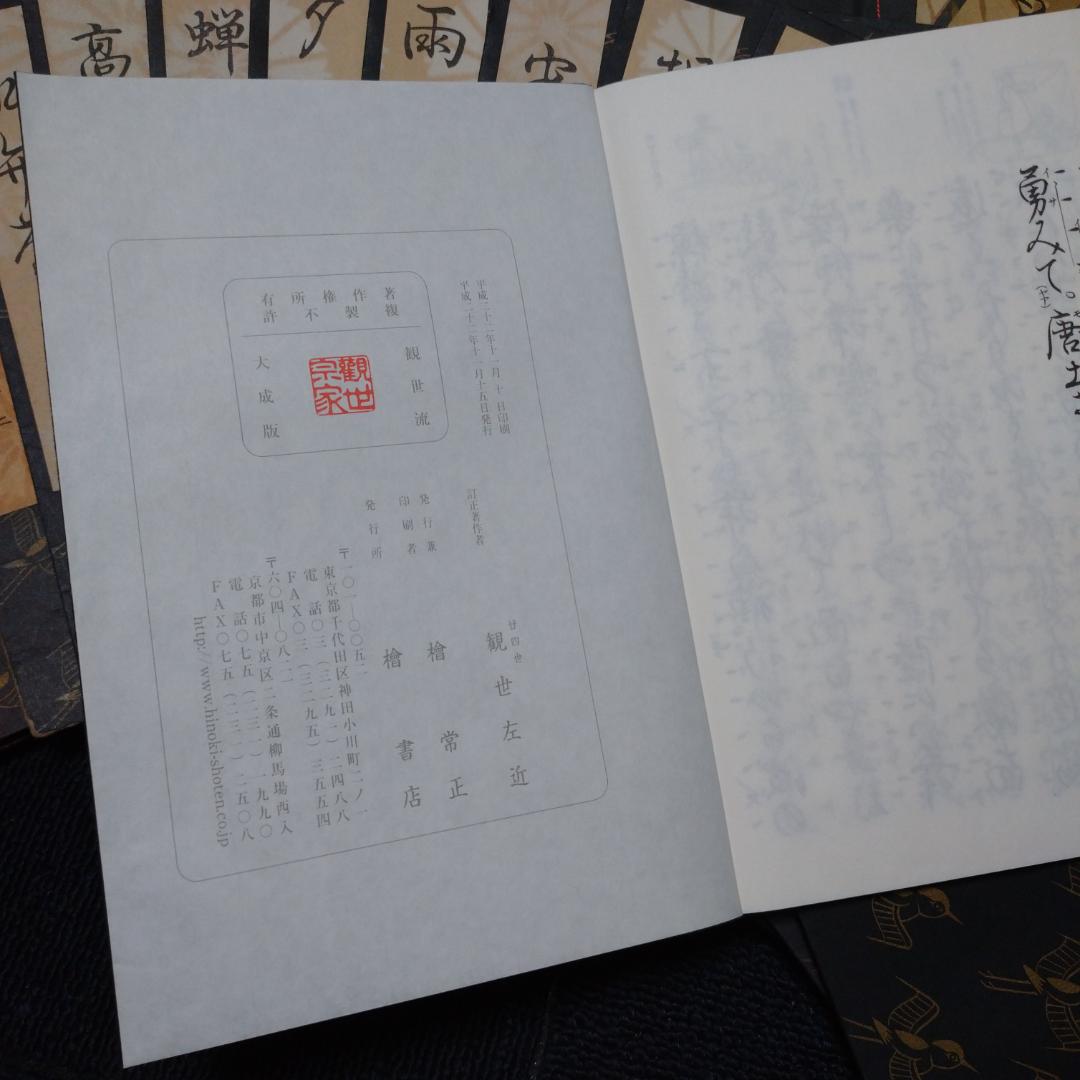 高
蝉
夕
雨
勇みて。唐土
平成二十二年十一月 十 日印刷
平成二十二年十一月十五日発行
著作権所有
複製不許
観世流
觀世宗家
大成版
訂正著作者
廿四世
観世左近
発行兼
印刷者
檜常正
発行所
檜書店
〒一〇一―〇〇五二
東京都千代田区神田小川町二ノ一
電 話〇三(三二九一)二四八八
FAX〇三(三二九五)三五五四
〒六〇四―〇八一一
京都市中京区二条通柳馬場西入
電 話〇七五(二三一)一九九〇
FAX〇七五(二三一)二五〇八
http://www.hinoki-shoten.co.jp